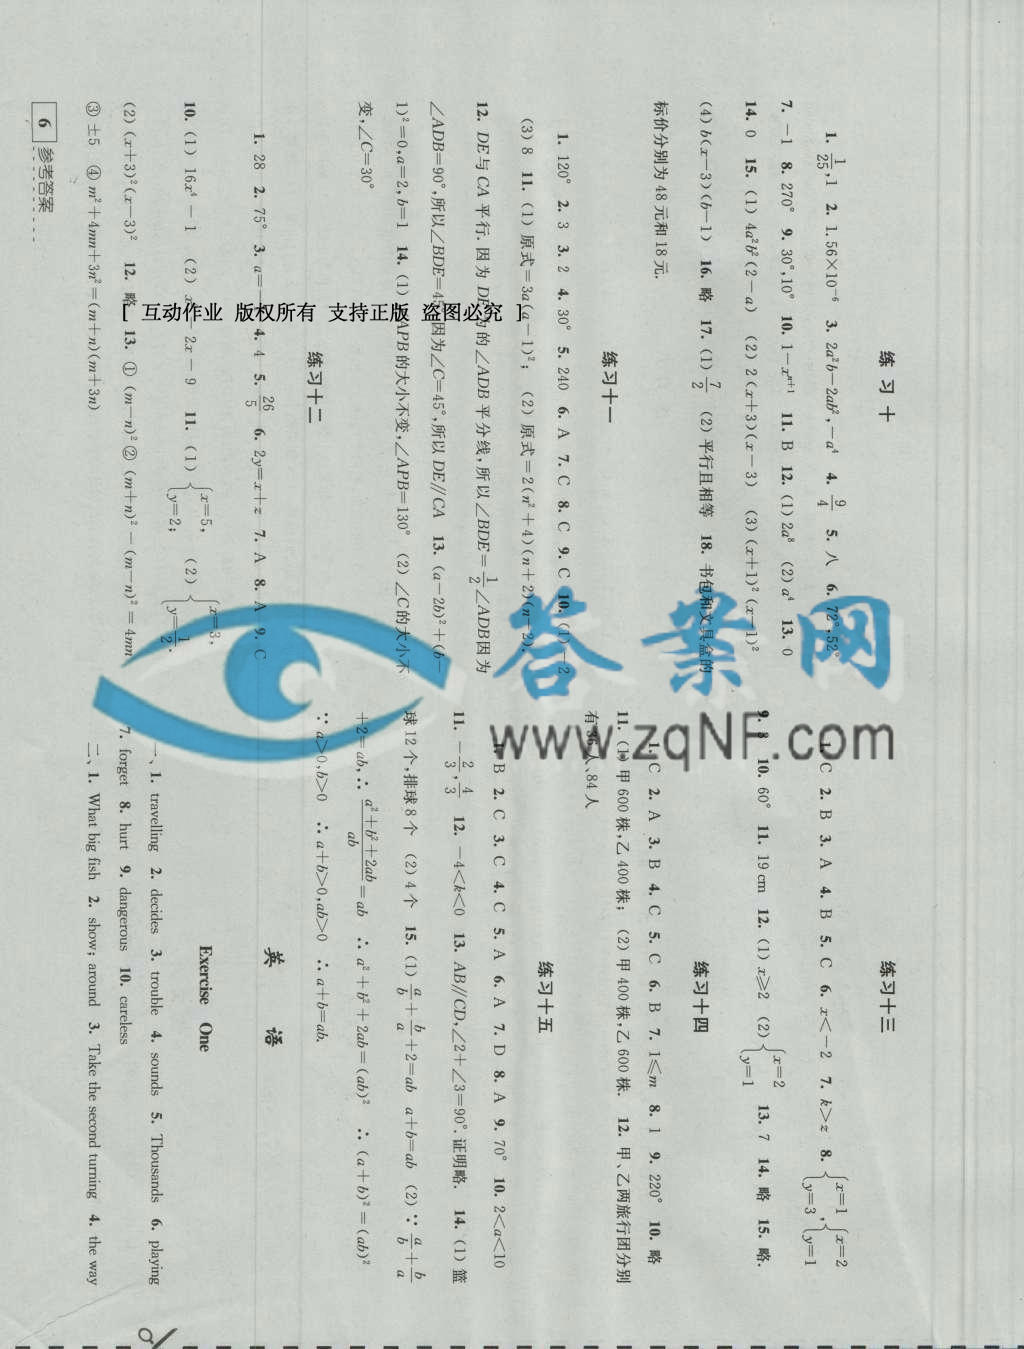 练 习 十
1. 1/25,1 2. 1.56×10⁻⁶ 3. 2a²b−2ab²,−a⁴ 4. 9/4 5. 八 6. 72°,52°
7. −1 8. 270° 9. 30°,10° 10. 1−xⁿ⁺¹ 11. B 12. (1) 2a⁸ (2) a⁴ 13. 0
14. 0 15. (1) 4a²b²(2−a) (2) 2(x+3)(x−3) (3) (x+1)²(x−1)²
(4) b(x−3)(b−1) 16. 略 17. (1) 7/2 (2) 平行且相等 18. 书包和文具盒的
标价分别为 48 元和 18 元.
练习十一
1. 120° 2. 3 3. 2 4. 30° 5. 240 6. A 7. C 8. C 9. C 10. (1) −2
(3) 8 11. (1) 原式=3a(a−1)²; (2) 原式=2(n²+4)(n+2)(n−2).
12. DE与CA平行. 因为DE为的∠ADB平分线,所以∠BDE=1/2∠ADB因为
∠ADB=90°,所以∠BDE=45°因为∠C=45°,所以DE∥CA 13. (a−2b)²+(b−
1)²=0,a=2,b=1 14. (1) ∠APB的大小不变,∠APB=130° (2) ∠C的大小不
变,∠C=30°
练习十二
1. 28 2. 75° 3. a=− 4. 4 5. 26/5 6. 2y=x+z 7. A 8. A 9. C
10. (1) 16x⁴−1 (2) x −2x−9 11. (1) {x=5, y=2; (2) {x=3, y=1/2.
(2) (x+3)²(x−3)² 12. 略 13. ① (m−n)² ② (m+n)²−(m−n)²=4mn
③ ±5 ④ m²+4mn+3n²=(m+n)(m+3n)
6 参考答案
练习十三
1. C 2. B 3. A 4. B 5. C 6. x<−2 7. k>z 8. {x=1 y=3, {x=2 y=1
9. 8 10. 60° 11. 19 cm 12. (1) x≥2 (2) {x=2 y=1 13. 7 14. 略 15. 略.
练习十四
1. C 2. A 3. B 4. C 5. C 6. B 7. 1≤m 8. 1 9. 220° 10. 略
11. (1) 甲 600 株,乙 400 株; (2) 甲 400 株,乙 600 株. 12. 甲、乙两旅行团分别
有 36 人、84 人
练习十五
1. B 2. C 3. C 4. C 5. A 6. A 7. D 8. A 9. 70° 10. 2<a<10
11. −2/3,4/3 12. −4<k<0 13. AB∥CD,∠2+∠3=90°.证明略. 14. (1) 篮
球 12 个,排球 8 个 (2) 4 个 15. (1) a/b+b/a+2=ab a+b=ab (2) ∵ a/b+b/a
+2=ab,∴ (a²+b²+2ab)/ab=ab ∴ a²+b²+2ab=(ab)² ∴ (a+b)²=(ab)²
∵ a>0,b>0 ∴ a+b>0,ab>0 ∴ a+b=ab.
英 语
Exercise One
一、1. travelling 2. decides 3. trouble 4. sounds 5. Thousands 6. playing
7. forget 8. hurt 9. dangerous 10. careless
二、1. What big fish 2. show; around 3. Take the second turning 4. the way
[ 互动作业 版权所有 支持正版 盗图必究 ]
答案网
www.zqNF.com